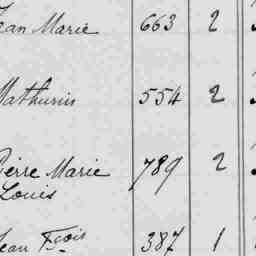 Jean Marie 663 2
Mathurin 554 2
Pierre Marie 789 2
Louis
Jean Fçois 387 1